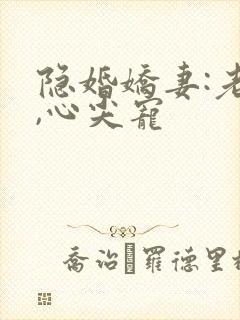 隐婚娇妻:老
,心尖宠
乔治·罗德里